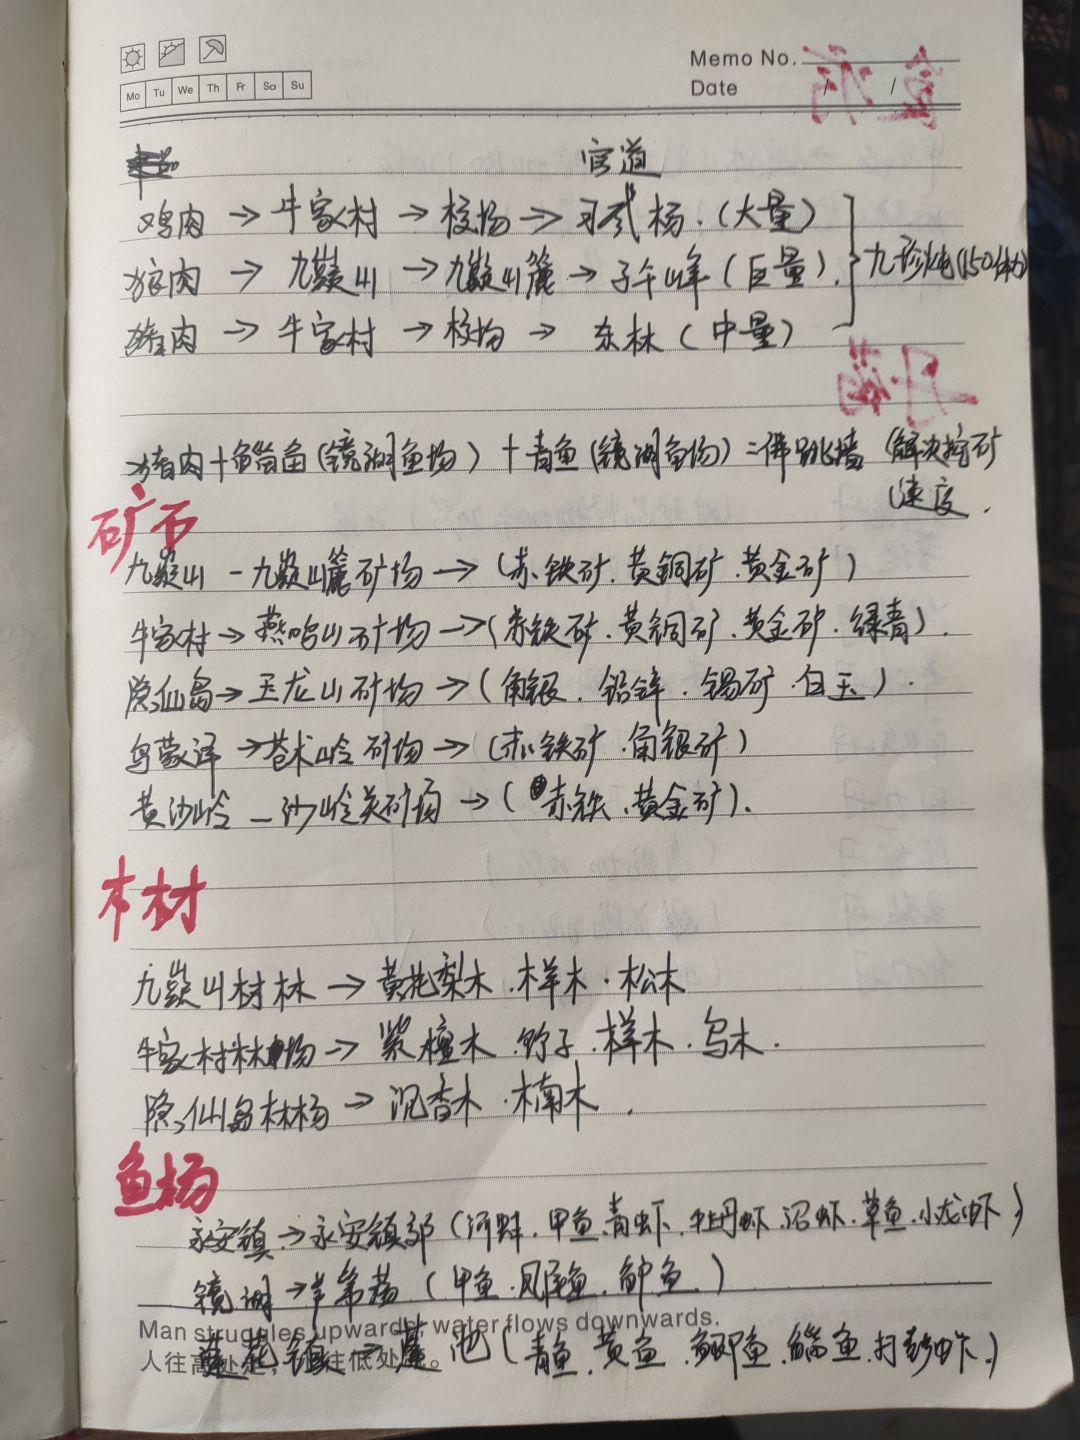 Memo No.
Mo Tu We Th Fr Sa Su
Date / /
官道
鸡肉 → 牛家村 → 校场 → 习武场.(大量)
狼肉 → 九嶷山 → 九嶷山麓 → 子午峰(巨量). 九珍炖(150体力)
猪肉 → 牛家村 → 校场 → 东林(中量)
丹药
猪肉+鲻鱼(镜湖鱼场)+青鱼(镜湖鱼场)=佛跳墙(解决挖矿
速度.
矿石
九嶷山-九嶷山麓矿场→(赤铁矿.黄铜矿.黄金矿)
牛家村→燕鸣山矿场→(赤铁矿.黄铜矿.黄金矿.绿青).
隐仙岛→玉龙山矿场→(角银.铅锌.锡矿.白玉).
乌蒙泽→苍术岭矿场→(赤铁矿.角银矿)
黄沙岭-沙岭关矿场→(赤铁.黄金矿).
木材
九嶷山材林→黄花梨木.样木.松木
牛家村林场→紫檀木.竹子.样木.乌木.
隐仙岛林场→沉香木.楠木.
鱼场
永安镇→永安镇郊(河蚌.甲鱼.青虾.牡丹虾.沼虾.草鱼.小龙虾)
镜湖→芦苇荡(甲鱼.凤尾鱼.鲈鱼.)
Man struggles upwards, water flows downwards.
莲花镇→莲池(青鱼.黄鱼.鲫鱼.鲻鱼.虾.)
人往高处走，水往低处流。